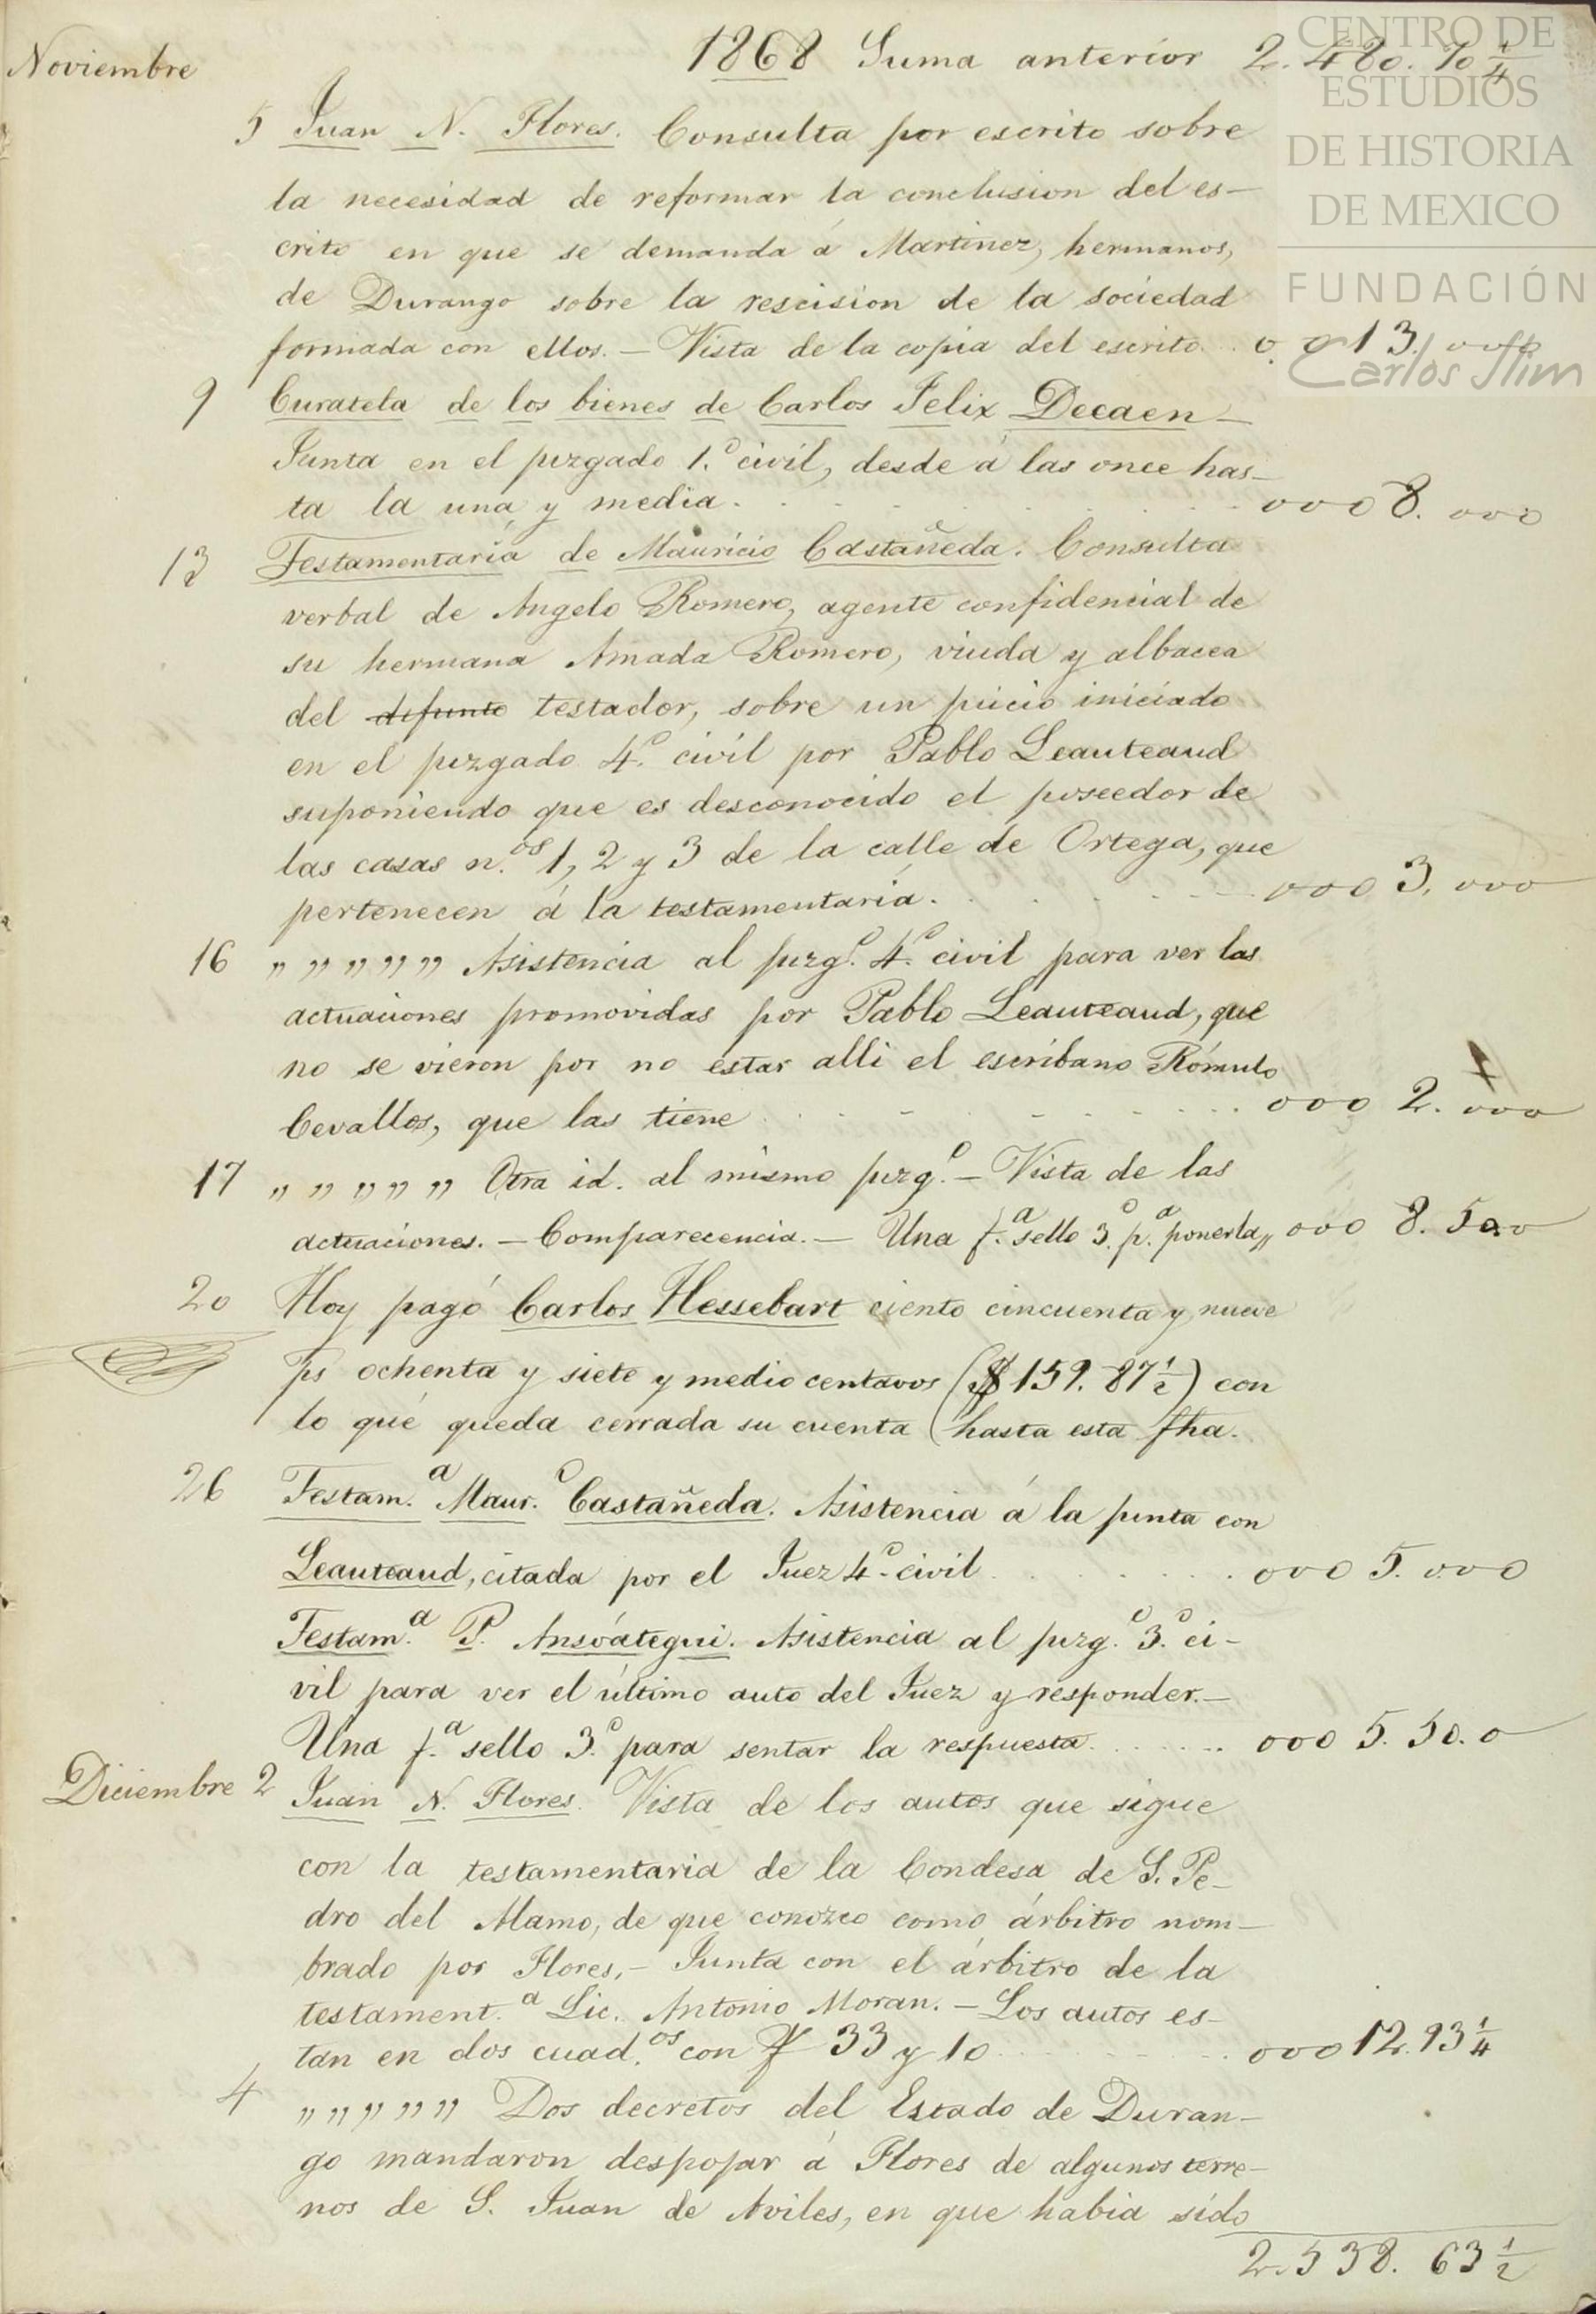 Noviembre 1868 Suma anterior 2.480.70 1/4
5 Juan N. Flores. Consulta por escrito sobre
la necesidad de reformar la conclusion del es-
crito en que se demanda á Martinez, hermanos,
de Durango sobre la rescision de la sociedad
formada con ellos. — Vista de la copia del escrito. 0.013.000
9 Curatela de los bienes de Carlos Felix Decaen —
Junta en el juzgado 1.º civil, desde á las once has-
ta la una y media. 0008.000
13 Testamentaría de Mauricio Castañeda. Consulta
verbal de Angelo Romero, agente confidencial de
su hermana Amada Romero, viuda y albacea
del difunto testador, sobre un juicio iniciado
en el juzgado 4.º civil por Pablo Leauteaud
suponiendo que es desconocido el poseedor de
las casas n.os 1, 2 y 3 de la calle de Ortega, que
pertenecen á la testamentaría. 0003.000
16 " " " " " Asistencia al juzg.º 4.º civil para ver las
actuaciones promovidas por Pablo Leauteaud, que
no se vieron por no estar alli el escribano Rómulo
Cevallos, que las tiene 0002.000
17 " " " " " Otra id. al mismo juzg.º — Vista de las
actuaciones. — Comparecencia. — Una f.a sello 3.º p.a ponerla,, 0008.500
20 Hoy pagó Carlos Hessebart ciento cincuenta y nueve
ps ochenta y siete y medio centavos ($159.87 1/2) con
lo qué queda cerrada su cuenta (hasta esta fha.
26 Testam.a Maur.o Castañeda. Asistencia á la junta con
Leauteaud, citada por el Juez 4.º civil 0005.000
Testam.a P. Ansóategui. Asistencia al juzg.º 3.º ci-
vil para ver el último auto del Juez y responder. —
Una f.a sello 3.º para sentar la respuesta. 0005.50.0
Diciembre 2 Juan N. Flores. Vista de los autos que sigue
con la testamentaria de la Condesa de S. Pe-
dro del Alamo, de que conozco como árbitro nom-
brado por Flores, — Junta con el árbitro de la
testament.a Lic. Antonio Moran. — Los autos es-
tan en dos cuad.os con f 33 y 10 00012.93 1/4
4 " " " " " Dos decretos del Estado de Duran-
go mandaron despojar á Flores de algunos terre-
nos de S. Juan de Aviles, en que habia sido
2.538.63 1/2
CENTRO DE
ESTUDIOS
DE HISTORIA
DE MEXICO
FUNDACIÓN
Carlos Slim